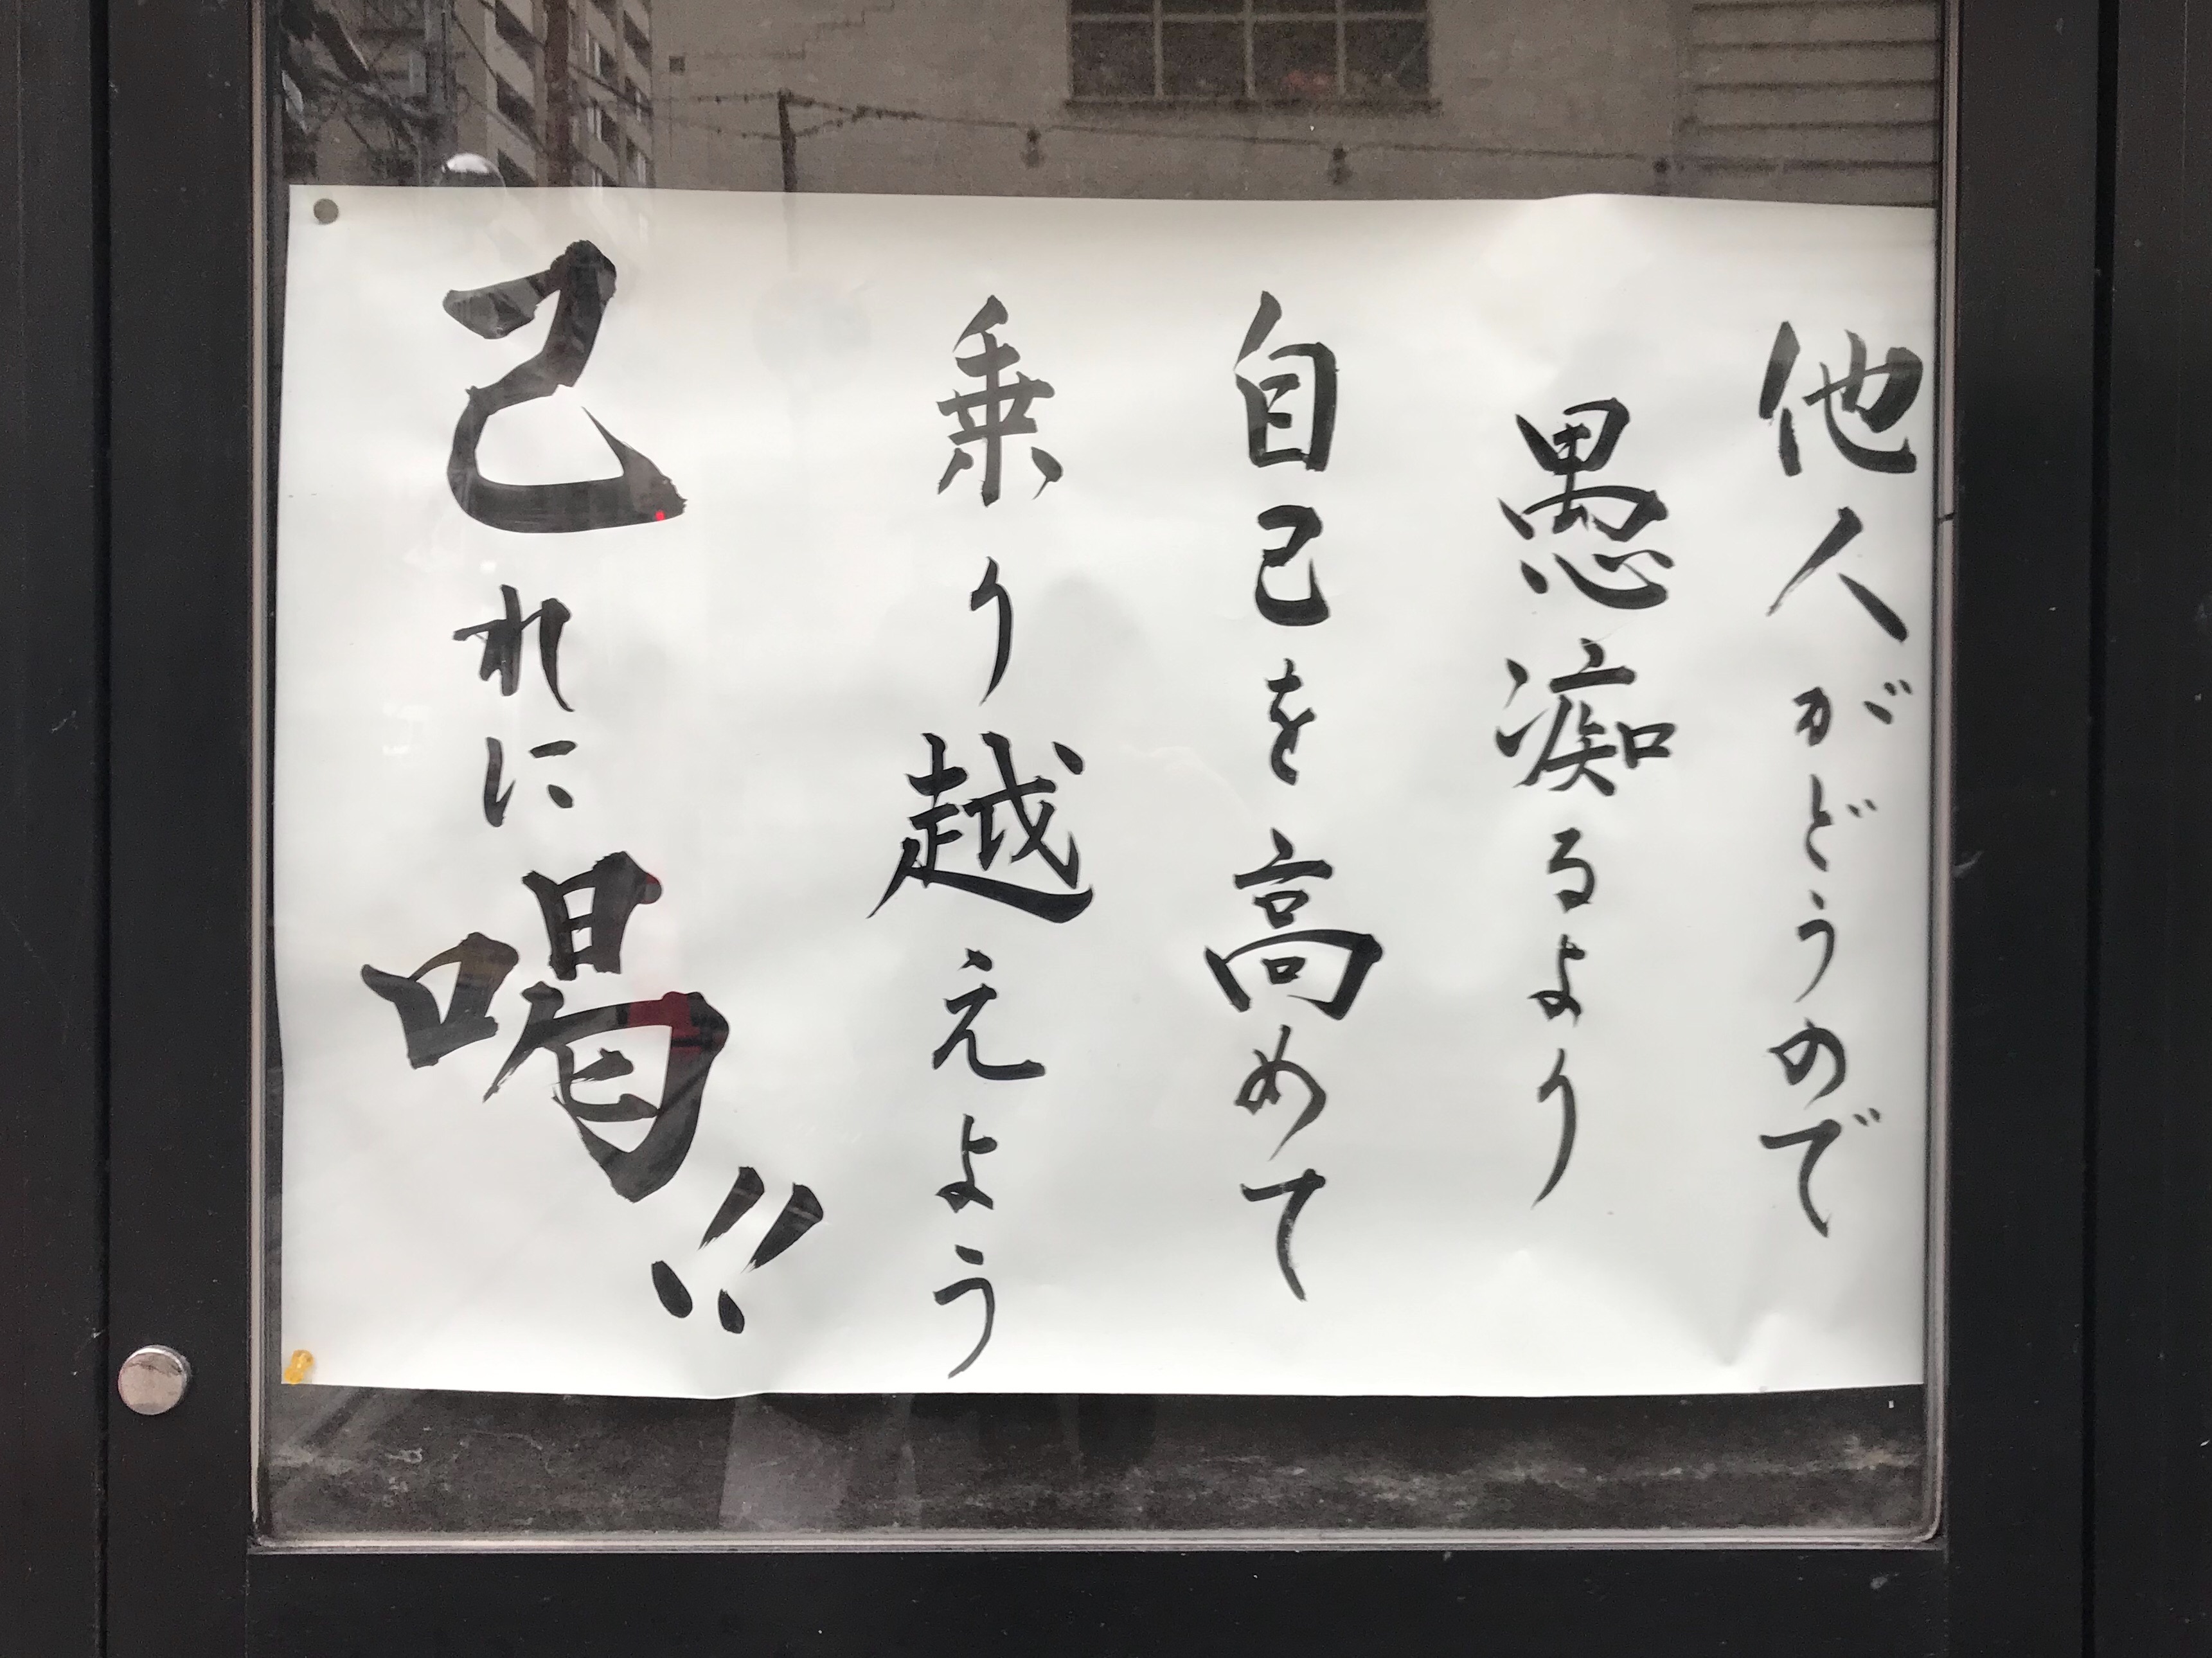 他人がどうので
愚痴るより
自己を高めて
乗り越えよう
己れに喝!!